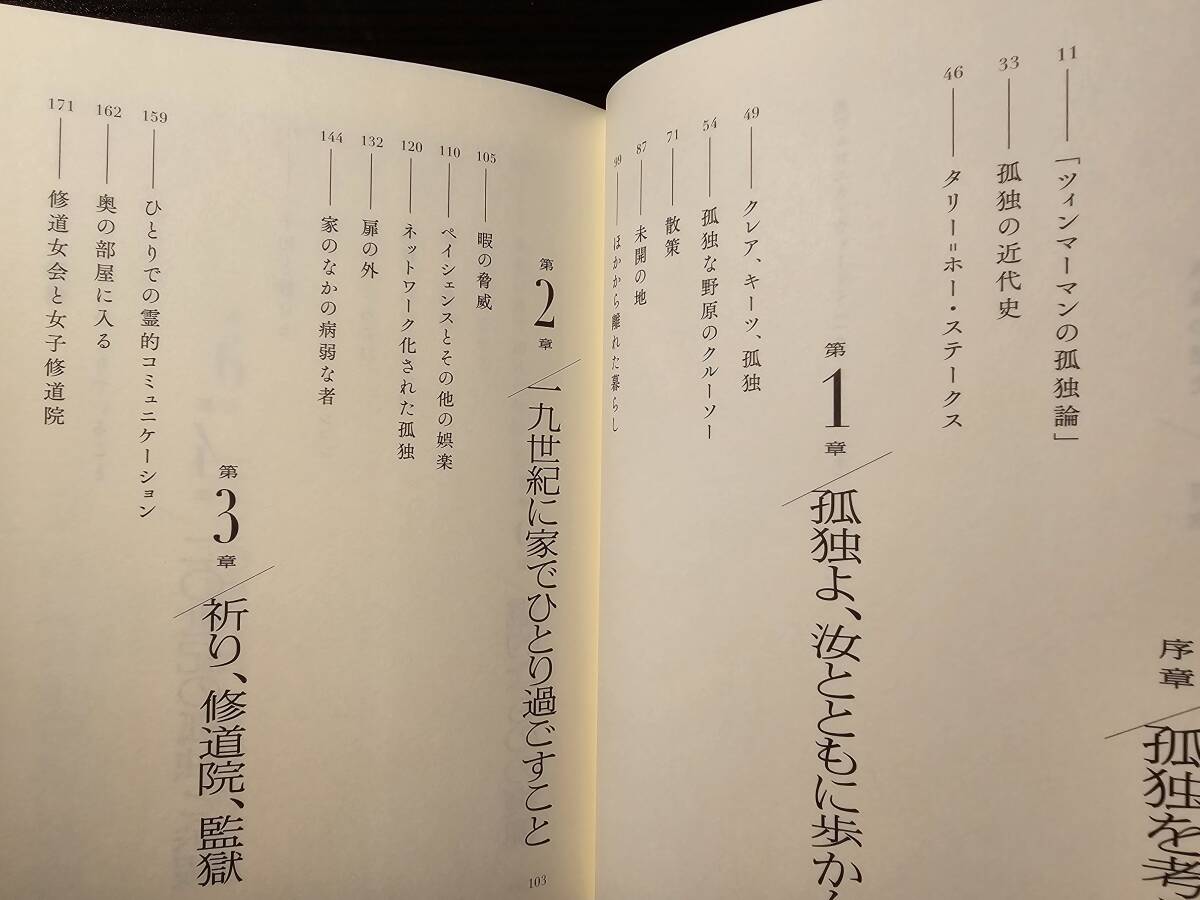 序章
孤独を考
11 「ツィンマーマンの孤独論」
33 孤独の近代史
46 タリー=ホー・ステークス
第1章
孤独よ、汝とともに歩か
49 クレア、キーツ、孤独
54 孤独な野原のクルーソー
71 散策
87 未開の地
99 ほかから離れた暮らし
第2章
一九世紀に家でひとり過ごすこと
103
105 暇の脅威
110 ペイシェンスとその他の娯楽
120 ネットワーク化された孤独
132 扉の外
144 家のなかの病弱な者
第3章
祈り、修道院、監獄
159 ひとりでの霊的コミュニケーション
162 奥の部屋に入る
171 修道女会と女子修道院